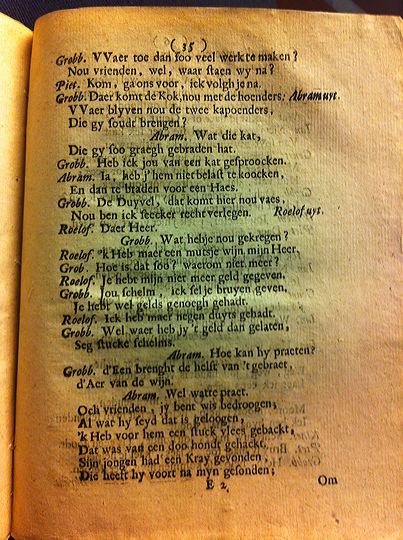 ( 35 )
Grobb. VVaer toe dan soo veel werk te maken?
Nou vrienden, wel, waar staen wy na?
Piet. Kom, ga ons voor, ick volgh je na.
Grobb. Daer komt de Kok, nou met de hoenders; Abram uyt.
VVaer blyven nou de twee kapoenders,
Die gy soudt brengen?
Abram. Wat die kat,
Die gy soo graegh gebraden hat.
Grobb. Heb ick jou van een kat gesproocken.
Abram. Ia, heb j'hem niet belast te koocken,
En dan te braden voor een Haes.
Grobb. De Duyvel, dat komt hier nou vaes,
Nou ben ick seecker recht verlegen. Roelof uyt.
Roelof. Daer Heer.
Grobb. Wat hebje nou gekregen?
Roelof. 'k Heb maer een mutsje wijn mijn Heer,
Grob. Hoe is dat soo? waerom niet meer?
Roelof. Je hebt mijn niet meer geld gegeven.
Grobb. Jou schelm, ick sel je bruyen geven,
Je hebt wel gelds genoegh gehadt.
Roelof. Ick heb maer negen duyts gehadt.
Grobb. Wel waer heb jy 't geld dan gelaten,
Seg stucke schelms.
Abram. Hoe kan hy praeten?
Grobb. d'Een brenght de helft van 't gebraet,
d'Aer van de wijn.
Abram. Wel watte praet.
Och vrienden, jy bent wis bedroogen;
Al wat hy seyd dat is geloogen,
'k Heb voor hem een stuck vlees gebackt,
Dat was van een doo hondt gehackt.
Sijn jongen had een Kray gevonden,
Die heeft hy voort na myn gesonden;
E 2. Om